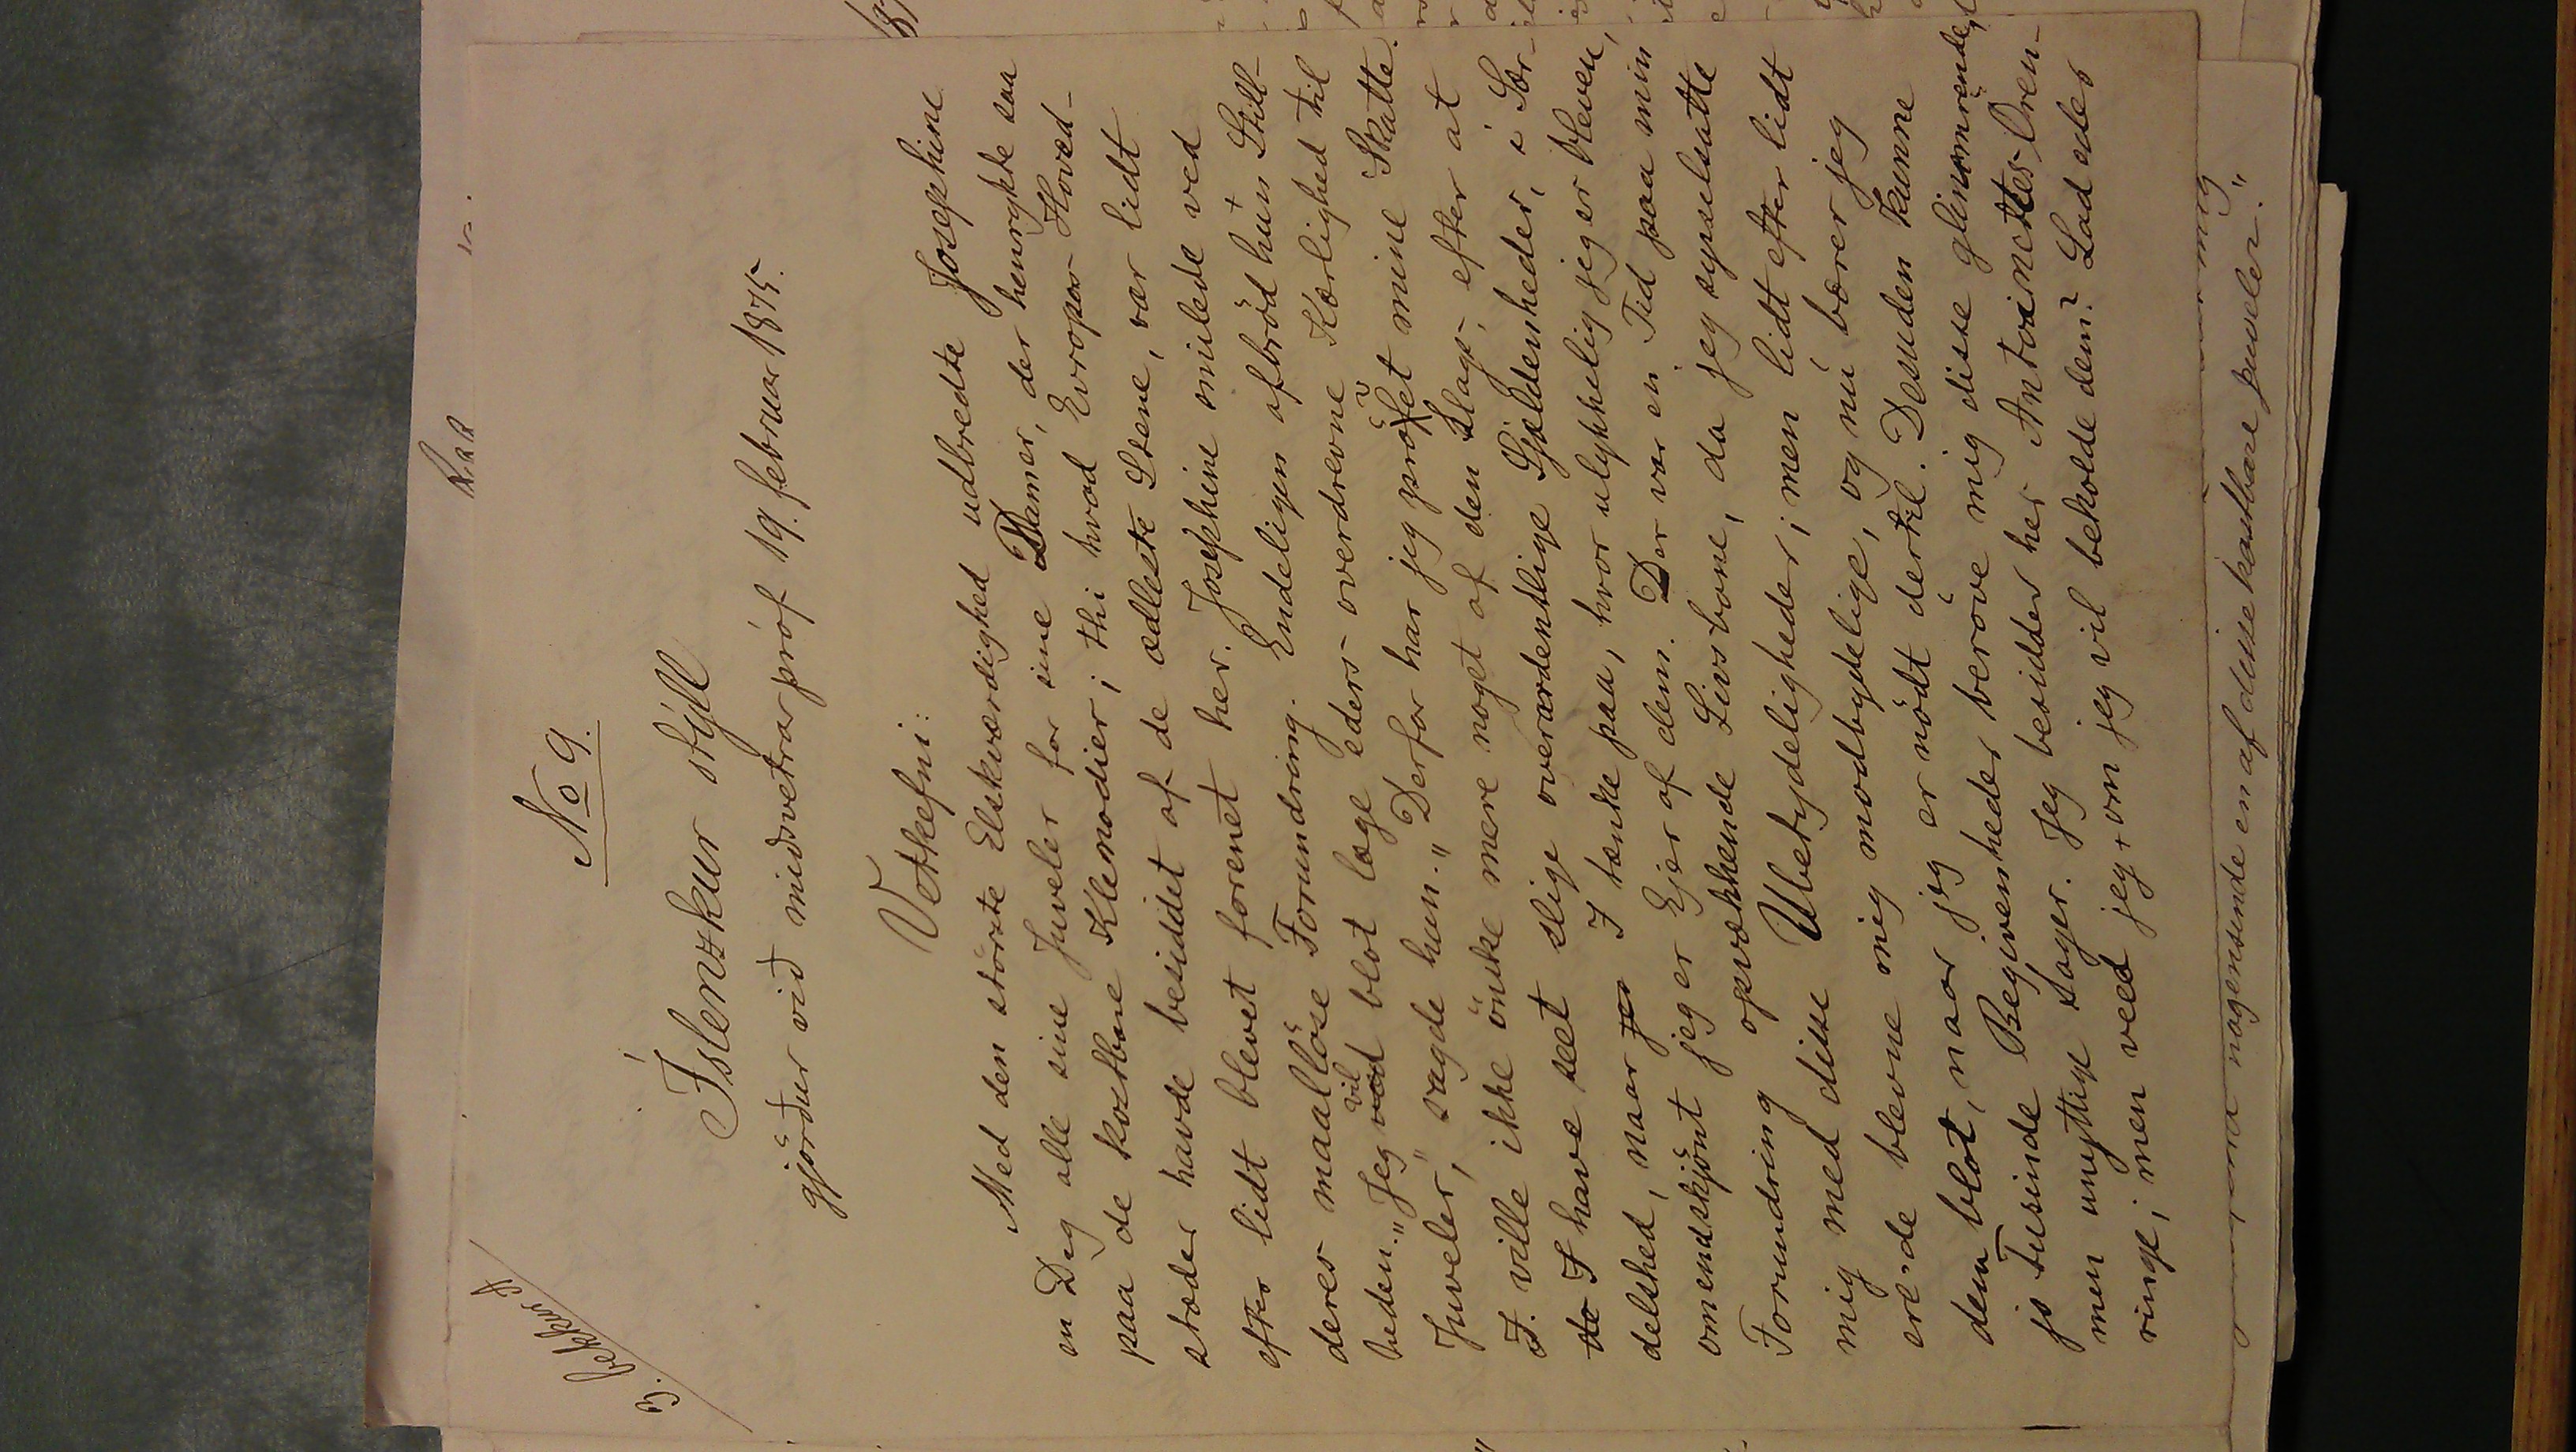 3. bekkur A
No 9.
Íslenzkur stýll
gjörður við miðsvetrarpróf 19. februar 1875.
Verkefni:
Med den störste Elskværdighed udbredte Josephine
en Dag alle sine Juveler for sine Damer, der henrykte saa
paa de kostbare Klenodier; thi hvad Evropas Hoved-
stæder havde besiddet af de ædleste Stene, var lidt
efter lidt blevet forenet her. Josephine smilede ved
deres maallöse Forundring. Endeligen afbröd hun Still-
heden. „Jeg vil blot læge eders overdrevne Kærlighed til
Juveler," sagde hun. „Derfor har jeg prövet mine Skatte.
I ville ikke önske mere noget af den Slags, efter at
I have seet slige overordentlige Sjældenheder, i Sær-
delshed, naar I tænke paa, hvor ulykkelig jeg er bleven,
omendskjönt jeg er Ejer af dem. Der var en Tid paa min
Forundring opvækkende Livsbane, da jeg sysselsatte
mig med disse Ubetydeligheder; men lidt efter lidt
ere de blevne mig modbydelige, og nú bærer jeg
dem blot, naar jeg er nödt dertil. Desuden kunne
jo Tusinde Begivenheder beröve mig disse glimrende,
men unyttige Sager. Jeg besidder her Antoinettes Ören-
ringe; men veed jeg, om jeg vil beholde dem? Lad eders
nogensinde en af disse kostbare juveler."
mig